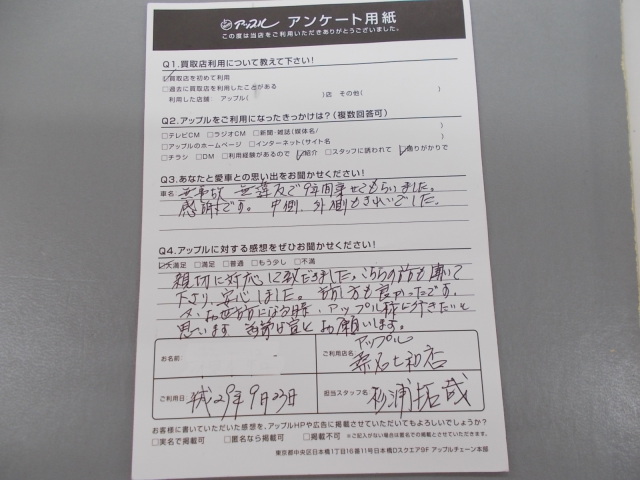 アップル アンケート用紙
この度は当店をご利用いただきありがとうございました。
Q1.買取店利用について教えて下さい!
買取店を初めて利用
□過去に買取店を利用したことがある
利用した店舗: アップル( )店 その他( )
Q2.アップルをご利用になったきっかけは?(複数回答可)
□テレビCM □ラジオCM □新聞・雑誌(媒体名/ )
□アップルのホームページ □インターネット(サイト名 )
□チラシ □DM □利用経験があるので 紹介 □スタッフに誘われて 通りがかりで
Q3.あなたと愛車との思い出をお聞かせください!
車名 無事故 無違反で9年間乗せてもらいました。
感謝です。内側、外側もきれいでした。
Q4.アップルに対する感想をぜひお聞かせください!
大満足 □満足 □普通 □もう少し □不満
親切に対応して頂きました。こちらの話も聞いて
下さり、安心しました。話し方も良かったです。
又、お世話になる時、アップル様に行きたいと
思います その節は宜しくお願いします。
お名前
ご利用店名 アップル
桑名七和店
ご利用日 平成29年9月23日
担当スタッフ名 杉浦拓哉
お客様に書いていただいた感想を、アップルHPや広告に掲載させていただいてもよろしいでしょうか?
□実名で掲載可 □匿名なら掲載可 □掲載不可 ※ご記入がない場合は匿名での掲載とさせていただきます。
東京都中央区日本橋1丁目16番11号日本橋Dスクエア9F アップルチェーン本部